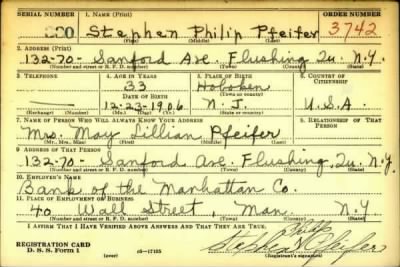 SERIAL NUMBER 1. NAME (Print) ORDER NUMBER
300 Stephen Philip Pfeifer 3742
(First) (Middle) (Last)
2. ADDRESS (Print)
132-70- Sanford Ave. Flushing Qu. N.Y.
(Number and street or R. F. D. number) (Town) (County) (State)
3. TELEPHONE 4. AGE IN YEARS 5. PLACE OF BIRTH 6. COUNTRY OF CITIZENSHIP
33 Hoboken
DATE OF BIRTH (Town or county)
12-23-1906 N. J. U.S.A.
(Exchange) (Number) (Mo.) (Day) (Yr.) (State or country)
7. NAME OF PERSON WHO WILL ALWAYS KNOW YOUR ADDRESS 8. RELATIONSHIP OF THAT PERSON
Mrs. May Lillian Pfeifer
(Mr., Mrs., Miss) (First) (Middle) (Last)
9. ADDRESS OF THAT PERSON
132-70- Sanford Ave. Flushing, Qu. N.Y.
(Number and street or R. F. D. number) (Town) (County) (State)
10. EMPLOYER'S NAME
Bank of the Manhattan Co.
11. PLACE OF EMPLOYMENT OR BUSINESS
40 Wall Street, Man. N.Y
(Number and street or R. F. D. number) (Town) (County) (State)
I AFFIRM THAT I HAVE VERIFIED ABOVE ANSWERS AND THAT THEY ARE TRUE.
Philip
REGISTRATION CARD Stephen Pfeifer
D. S. S. Form 1 (over) 16-17105 (Registrant's signature)